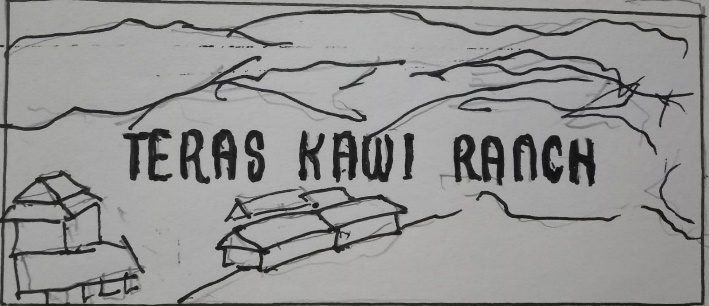 TERAS KAWI RANCH